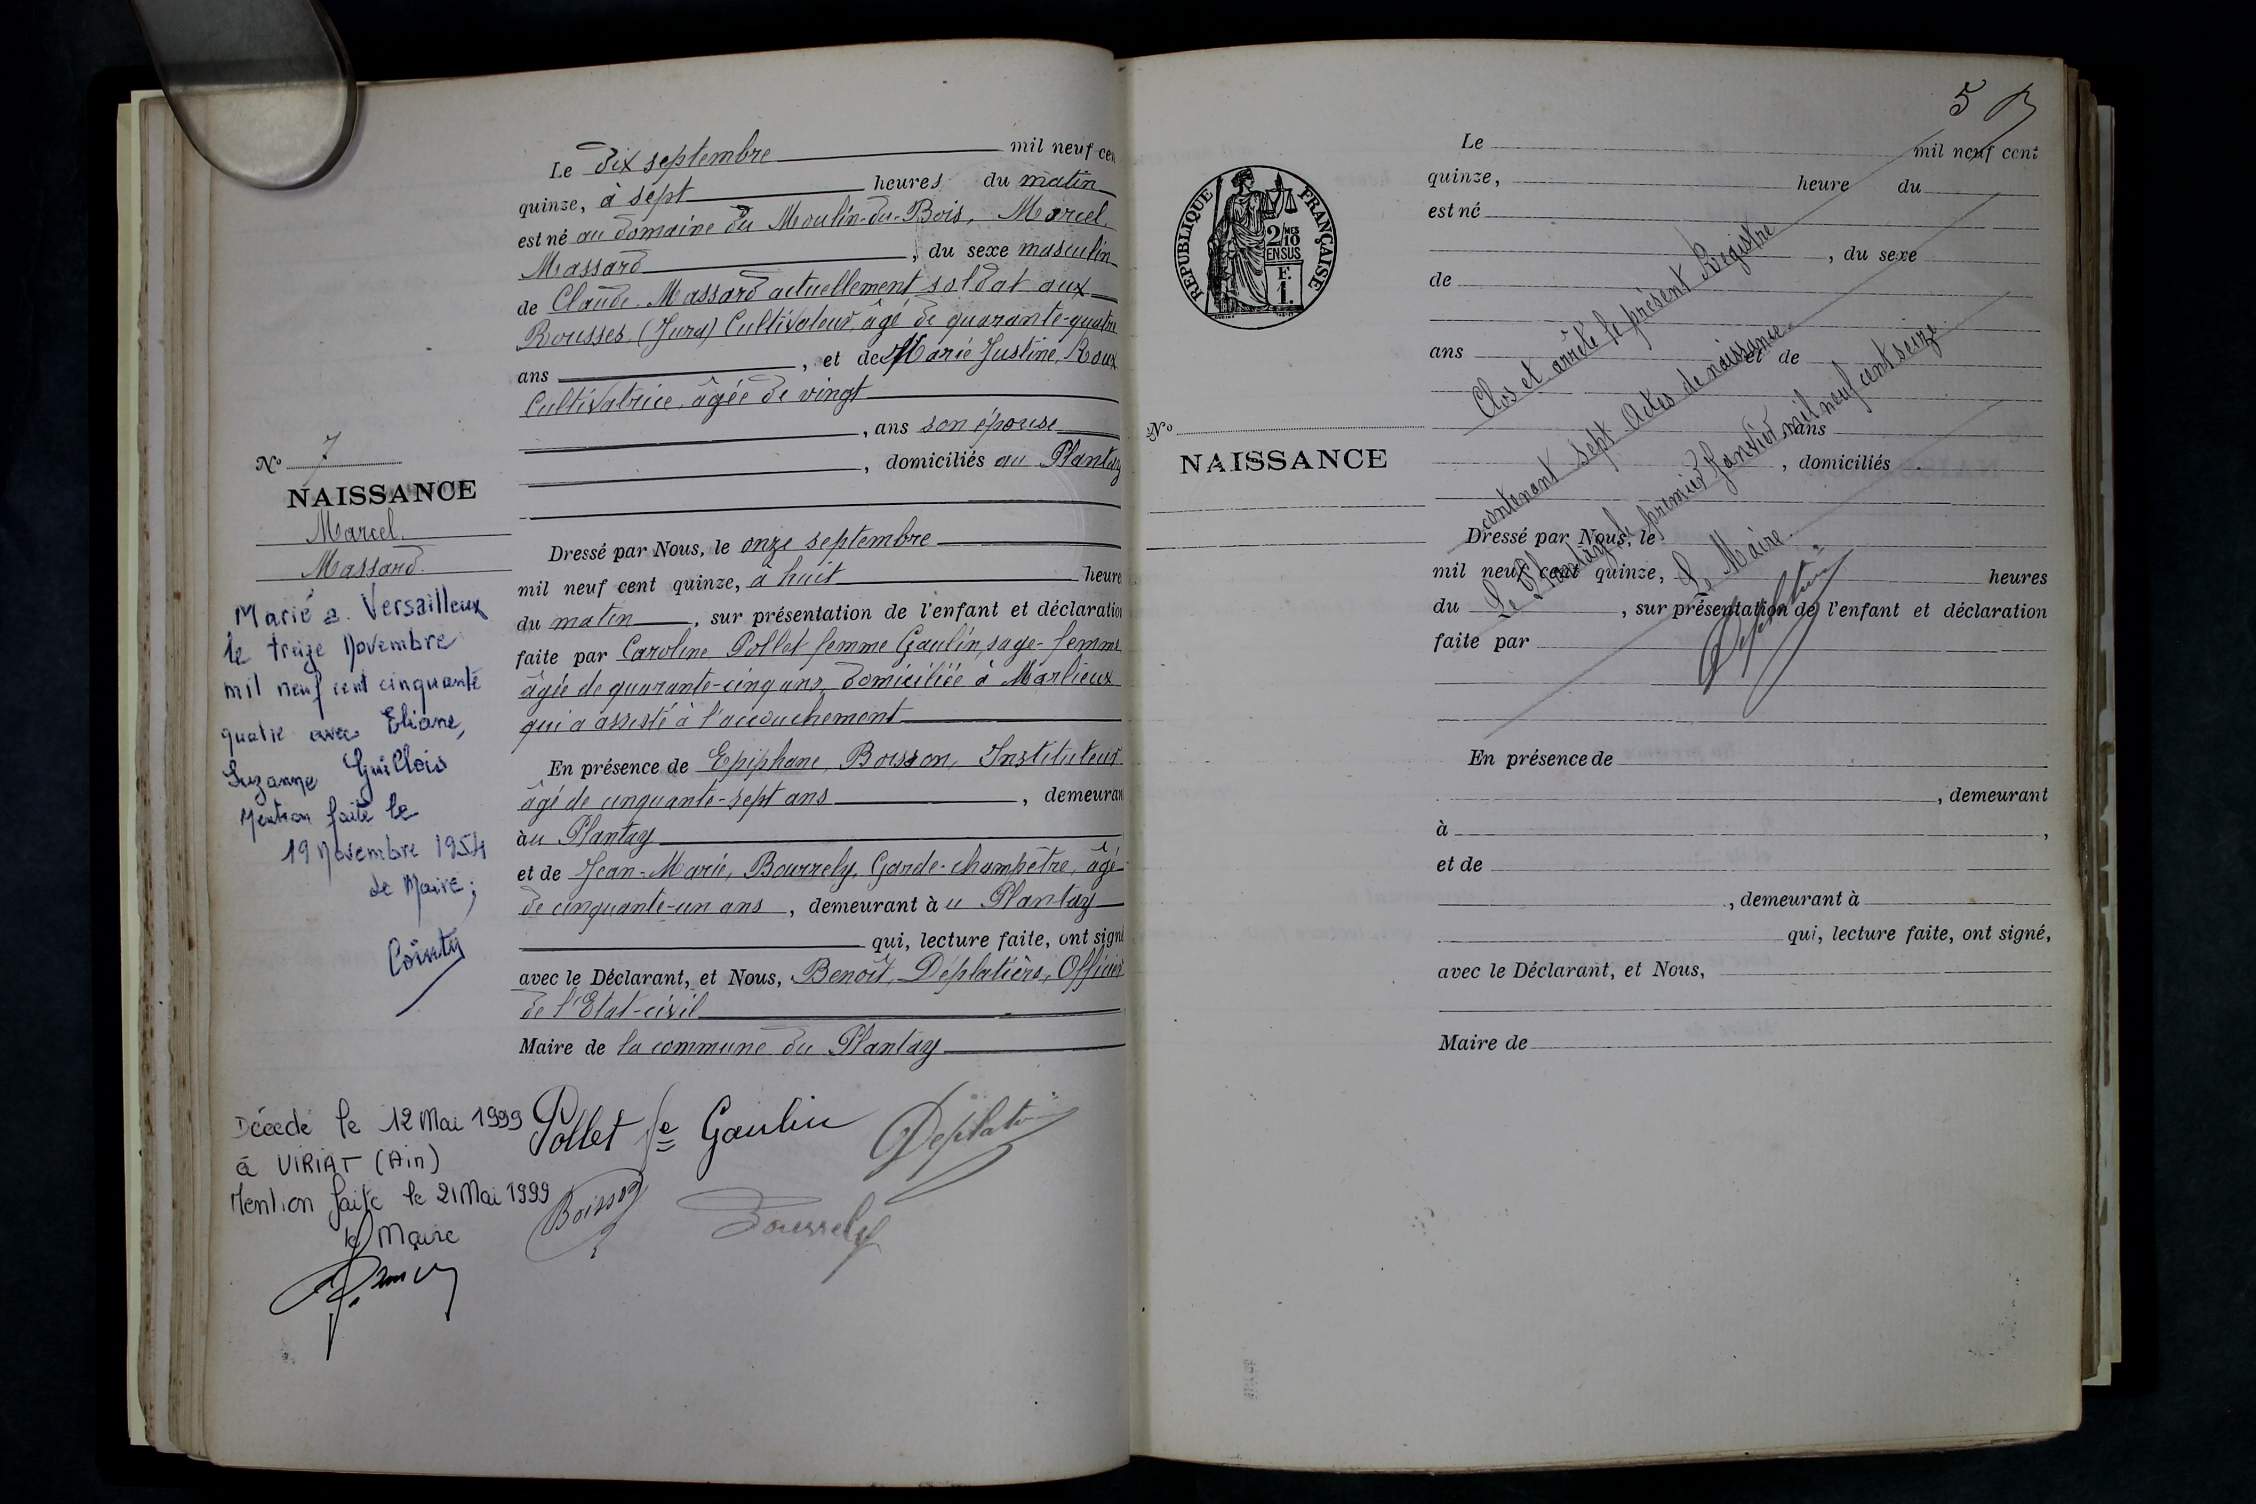 Le dix septembre mil neuf cen
quinze, à sept heures du matin
est né au domaine du Moulin-du-Bois, Marcel,
Massard, du sexe masculin
de Claude Massard actuellement soldat aux
Rousses (Jura) Cultivateur, âgé de quarante-quatre
ans, et de Marie Justine, Roux
Cultivatrice, âgée de vingt
, ans son épouse
, domiciliés au Plantay
No 7
NAISSANCE
Marcel.
Massard.
Dressé par Nous, le onze septembre
mil neuf cent quinze, à huit heure
du matin, sur présentation de l'enfant et déclaration
faite par Caroline Pollet femme Gaulin, sage-femme
âgée de quarante-cinq ans, domiciliée à Marlieux
qui a assisté à l'accouchement
En présence de Epiphane, Boisson, Instituteur
âgé de cinquante-sept ans, demeuran
àu Plantay
et de Jean-Marie, Bourrely, Garde-champêtre, âgé
de cinquante-un ans, demeurant à u Plantay
qui, lecture faite, ont signé
avec le Déclarant, et Nous, Benoît, Déplatière, Officier
de l'Etat-civil
Maire de la commune du Plantay
Marié à Versailleux
le treize Novembre
mil neuf cent cinquante
quatre avec Eliane,
Suzanne Guillois
Mention faite le
19 Novembre 1954
Le Maire;
Décédé le 12 Mai 1999
à VIRIAT (Ain)
Mention faite le 21 Mai 1999
le Maire
Pollet fe Gaulin
Deplatière
Boisson
Bourrely
5
REPUBLIQUE FRANÇAISE
2/10 MES
EN SUS
F.
1.
No
NAISSANCE
Le mil neuf cent
quinze, heure du
est né
, du sexe
de
ans et de
, ans
, domiciliés
Dressé par Nous, le
mil neuf cent quinze, heures
du , sur présentation de l'enfant et déclaration
faite par
En présence de
, demeurant
à ,
et de
, demeurant à
qui, lecture faite, ont signé,
avec le Déclarant, et Nous,
Maire de
Clos et arrêté le présent Registre
contenant sept Actes de naissance
Le Plantay, le premier Janvier mil neuf cent seize
Le Maire
Deplatière